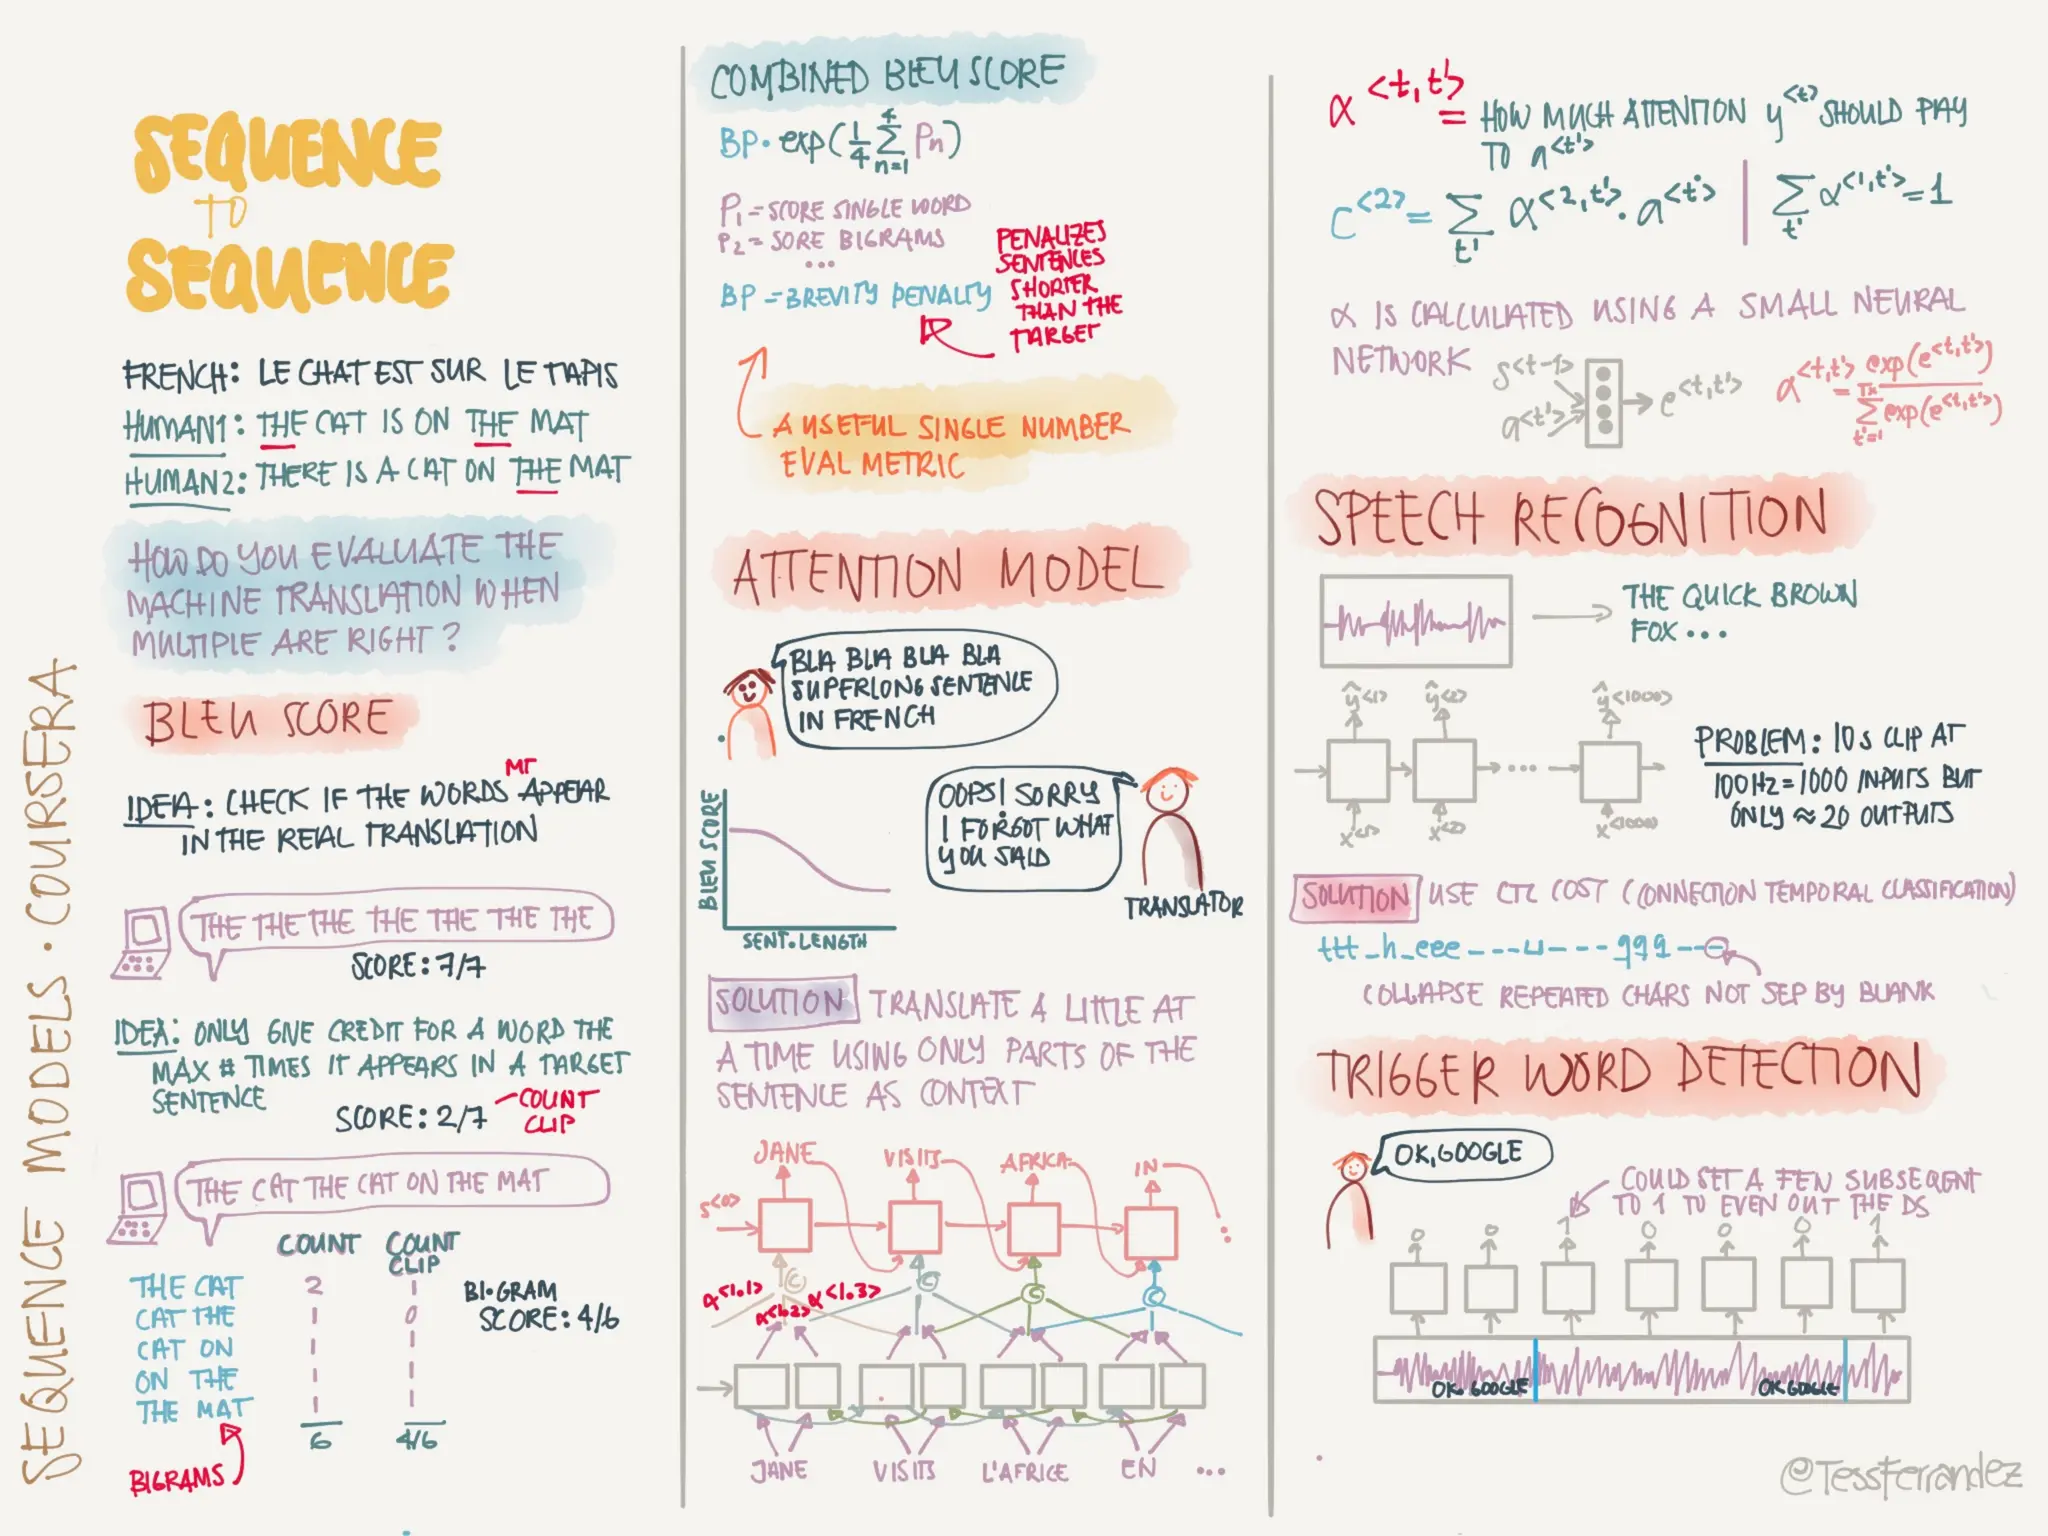 SEQUENCE MODELS · COURSERA
SEQUENCE
TO
SEQUENCE
FRENCH: LE CHAT EST SUR LE TAPIS
HUMAN1: THE CAT IS ON THE MAT
HUMAN2: THERE IS A CAT ON THE MAT
HOW DO YOU EVALUATE THE
MACHINE TRANSLATION WHEN
MULTIPLE ARE RIGHT?
BLEU SCORE
MT
IDEA: CHECK IF THE WORDS APPEAR
IN THE REAL TRANSLATION
THE THE THE THE THE THE THE
SCORE: 7/7
IDEA: ONLY GIVE CREDIT FOR A WORD THE
MAX # TIMES IT APPEARS IN A TARGET
SENTENCE
SCORE: 2/7
COUNT
CLIP
THE CAT THE CAT ON THE MAT
COUNT COUNT
CLIP
THE CAT 2 1
CAT THE 1 0
CAT ON 1 1
ON THE 1 1
THE MAT 1 1
6 4/6
BI·GRAM
SCORE: 4/6
BIGRAMS
COMBINED BLEU SCORE
BP · exp(1/4 4∑n=1 Pn)
P1 = SCORE SINGLE WORD
P2 = SORE BIGRAMS
...
BP = BREVITY PENALTY
PENALIZES
SENTENCES
SHORTER
THAN THE
TARGET
A USEFUL SINGLE NUMBER
EVAL METRIC
ATTENTION MODEL
BLA BLA BLA BLA
SUPERLONG SENTENCE
IN FRENCH
OOPS! SORRY
I FORGOT WHAT
YOU SAID
TRANSLATOR
BLEU SCORE
SENT. LENGTH
SOLUTION TRANSLATE A LITTLE AT
A TIME USING ONLY PARTS OF THE
SENTENCE AS CONTEXT
JANE VISITS AFRICA IN
s<0>
C C C C
α<1.1> α<1.2> α<1.3>
JANE VISITS L'AFRICE EN ...
α<t,t'> = HOW MUCH ATTENTION y<t> SHOULD PAY
TO a<t'>
C<2> = ∑t' α<2,t'> · a<t'> | ∑t' α<1,t'> = 1
α IS CALCULATED USING A SMALL NEURAL
NETWORK
s<t-1>
a<t'>
e<t,t'>
a<t,t'> = exp(e<t,t'>) / Tx∑t'=1 exp(e<t,t'>)
SPEECH RECOGNITION
THE QUICK BROWN
FOX ...
ŷ<1> ŷ<2> ŷ<1000>
...
x<1> x<2> x<1000>
PROBLEM: 10s CLIP AT
100HZ = 1000 INPUTS BUT
ONLY ≈ 20 OUTPUTS
SOLUTION USE CTC COST (CONNECTION TEMPORAL CLASSIFICATION)
ttt_h_eee---⊔---qqq---
COLLAPSE REPEATED CHARS NOT SEP BY BLANK
TRIGGER WORD DETECTION
OK, GOOGLE
COULD SET A FEW SUBSEQENT
TO 1 TO EVEN OUT THE DS
0 0 1 0 0 0 1
OK. GOOGLE OK GOOGLE
@TessFerrandez